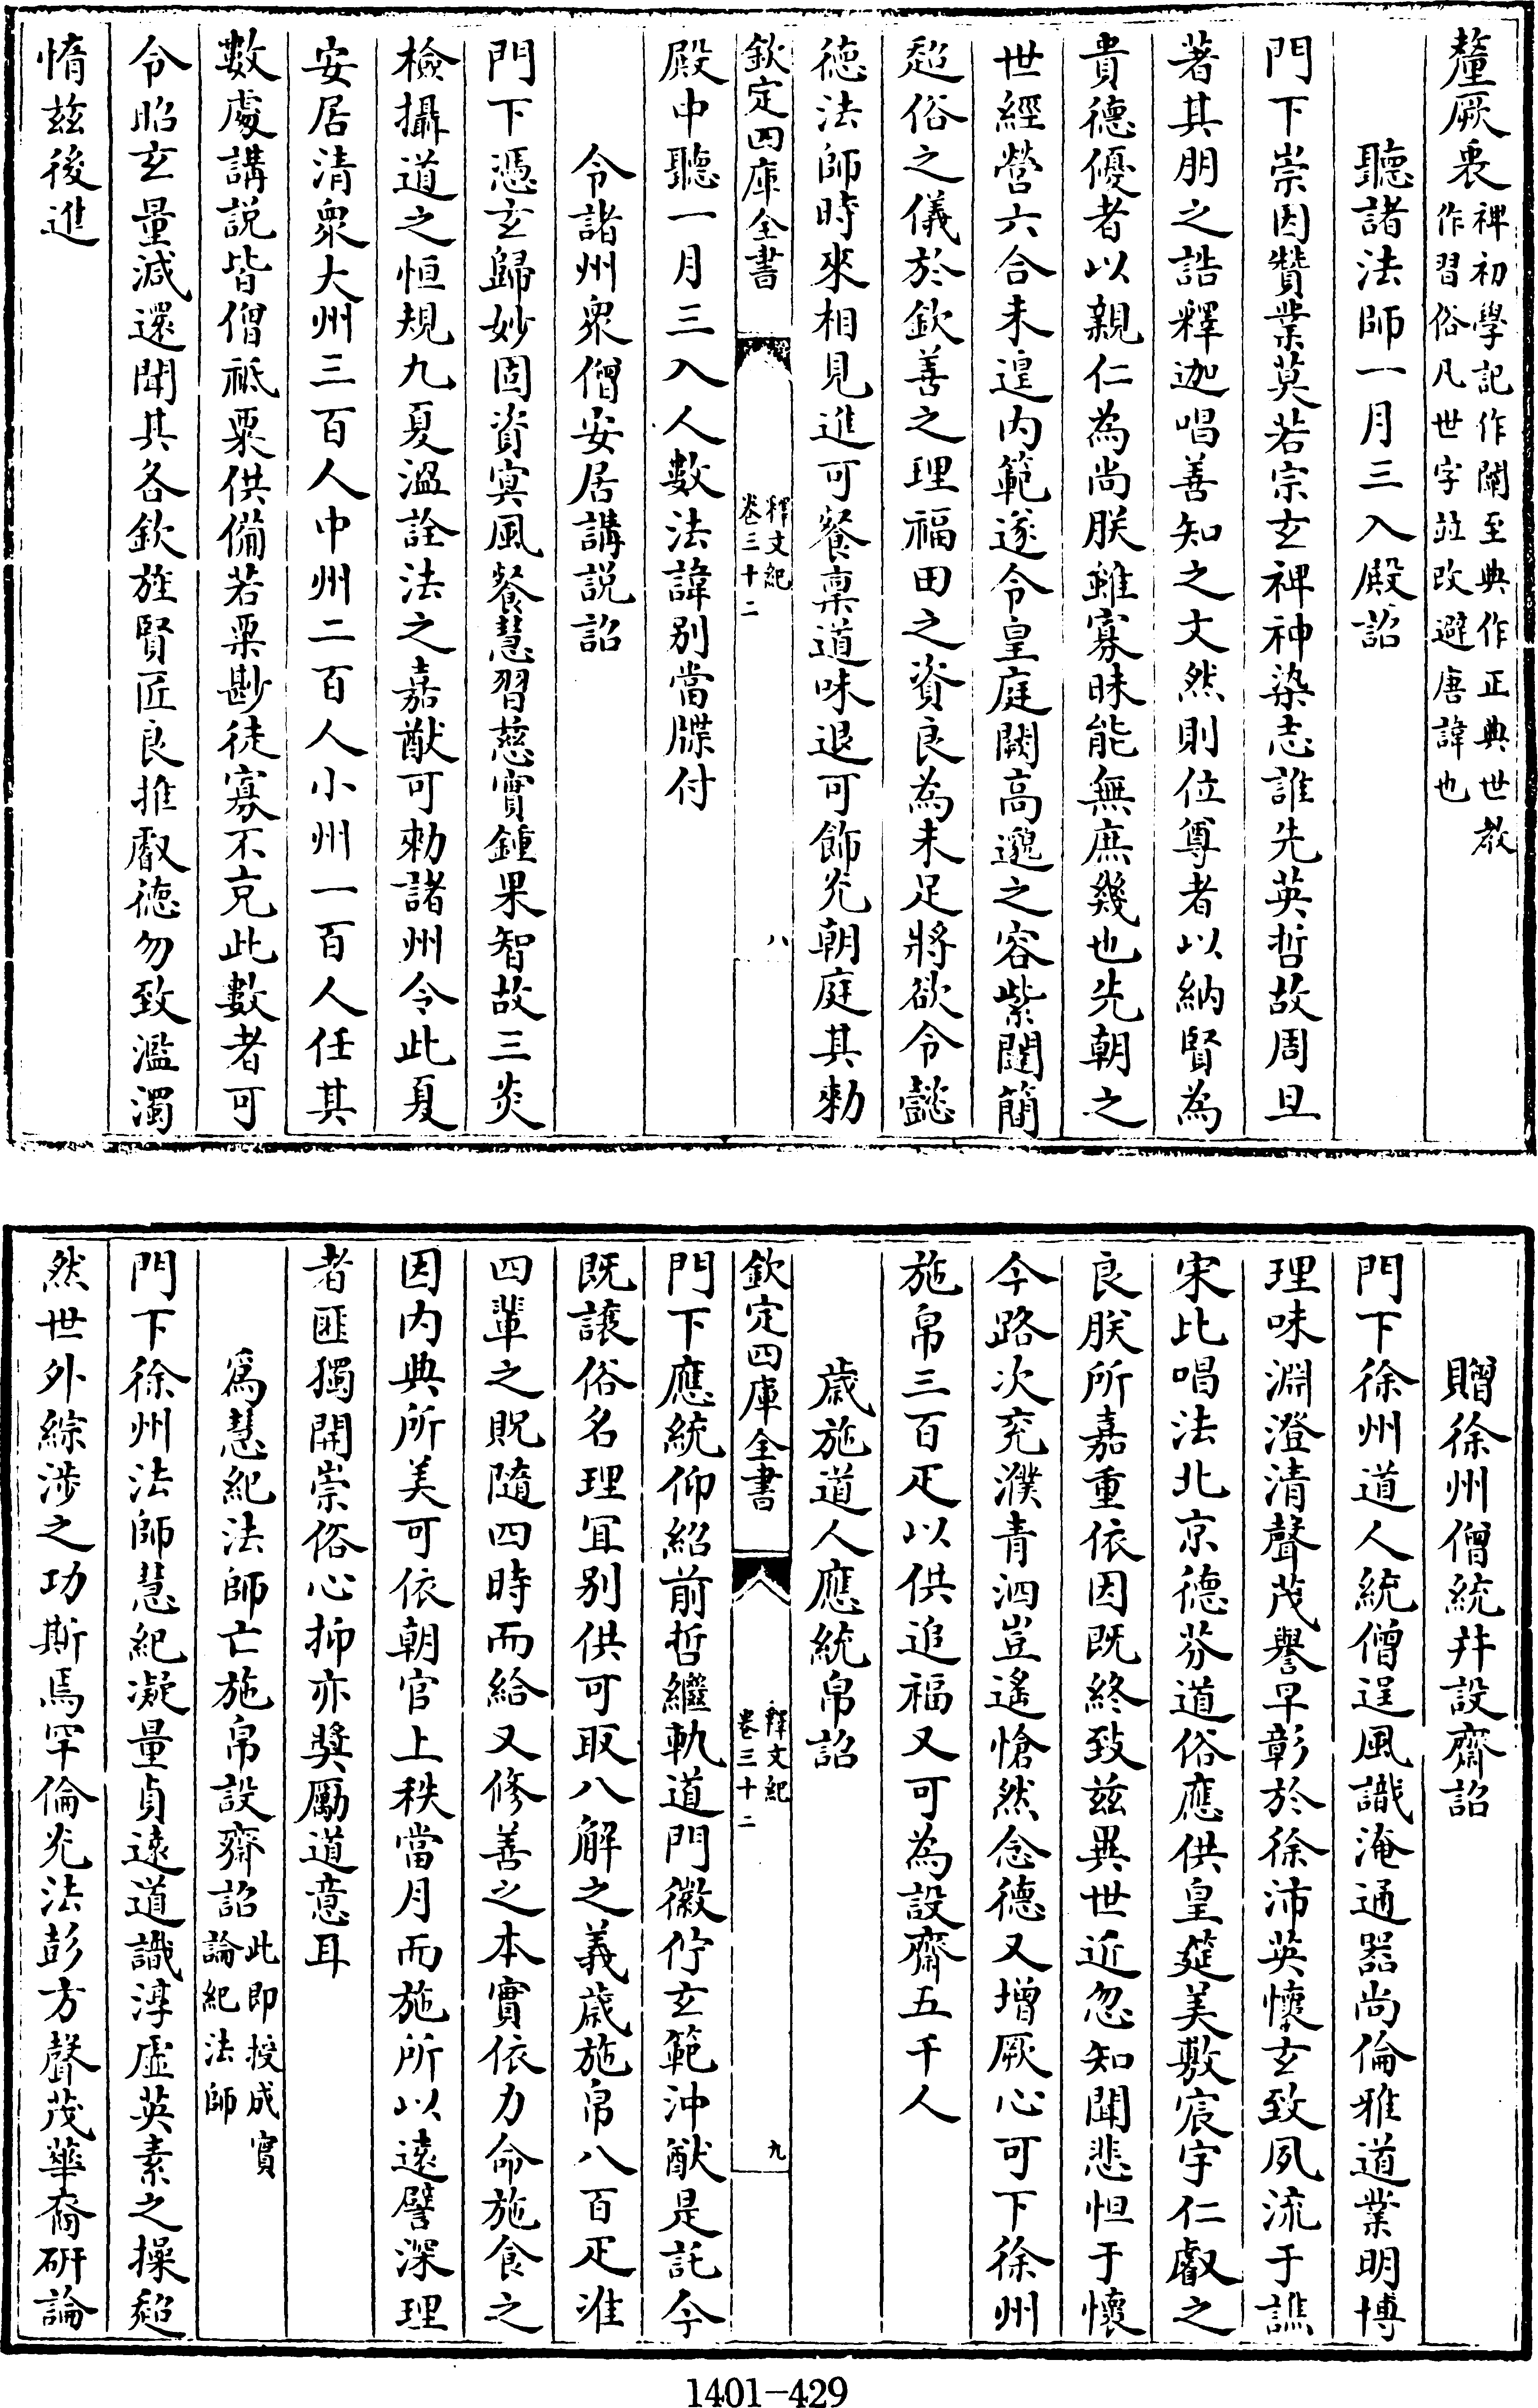 釐厥衷禆初學記作闡至典作正典世教
作習俗凡世字竝改避唐諱也
聽諸法師一月三入殿詔
門下崇因賛業莫若宗玄禆神染志誰先英哲故周旦
著其朋之誥釋迦唱善知之文然則位尊者以納賢為
貴德優者以親仁為尚朕雖寡昧能無庶幾也先朝之
世經營六合未遑内範遂令皇庭闕高邈之容紫闥簡
超俗之儀於欽善之理福田之資良為未足將欲令懿
德法師時來相見進可餐稟道味退可飾光朝庭其勅
欽定四庫全書
釋文紀
卷三十二
八
殿中聽一月三入人數法諱别當牒付
令諸州衆僧安居講説詔
門下憑玄歸妙固資㝠風餐慧習慈實鍾果智故三炎
檢攝道之恒規九夏温詮法之嘉猷可勅諸州令此夏
安居清衆大州三百人中州二百人小州一百人任其
數處講説皆僧祗粟供備若粟尠徒寡不充此數者可
令昭玄量減還聞其各欽旌賢匠良推叡德勿致濫濁
惰兹後進
贈徐州僧統并設齋詔
門下徐州道人統僧逞風識淹通器尚倫雅道業明博
理味淵澄清聲茂譽早彰於徐沛英懷玄致夙流于譙
宋比唱法北京德芬道俗應供皇筵美敷宸宇仁叡之
良朕所嘉重依因既終致兹異世近忽知聞悲怛于懷
今路次兖濮青泗豈遙愴然念德又增厥心可下徐州
施帛三百疋以供追福又可為設齋五千人
歲施道人應統帛詔
欽定四庫全書
釋文紀
卷三十二
九
門下應統仰紹前哲繼軌道門徽佇玄範沖猷是託今
既讓俗名理宜别供可取八解之義歲施帛八百疋准
四輩之貺隨四時而給又修善之本實依力命施食之
因内典所美可依朝官上秩當月而施所以遠譬深理
者匪獨開崇俗心抑亦奬勵道意耳
爲慧紀法師亡施帛設齋詔此即授成實
論紀法師
門下徐州法師慧紀凝量貞遠道識淳虛英素之操超
然世外綜涉之功斯焉罕倫光法彭方聲茂華裔研論
1401-429